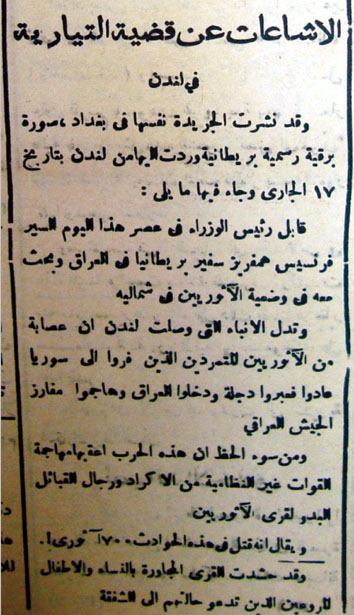 الاشاعات عن قضية التيارية
في لندن
وقد نشرت الجريدة نفسها فى بغداد ، صورة
برقية رسمية بريطانية وردت اليها من لندن بتاريخ
١٧ الجارى وجاء فيها ما يلى :
قابل رئيس الوزراء فى عصر هذا اليوم السير
فرنسيس همفريز سفير بريطانيا فى العراق وبحث
معه فى وضعية الآثوريين فى شماليه
وتدل الانباء التى وصلت لندن ان عصابة
من الآثوريين المتمردين الذين فروا الى سوريا
عادوا فعبروا دجلة ودخلوا العراق وهاجموا مفارز
الجيش العراقي
ومن سوء الحظ ان هذه الحرب اعقبها مهاجمة
القوات غير النظامية من الاكراد ورجال القبائل
البدو لقرى الآثوريين
ويقال انه قتل فى هذه الحوادث ٧٠٠ آثورى !.
وقد حشدت القرى المجاورة بالنساء والاطفال
المروعين الذين تدعو حالتهم الى الشفقة